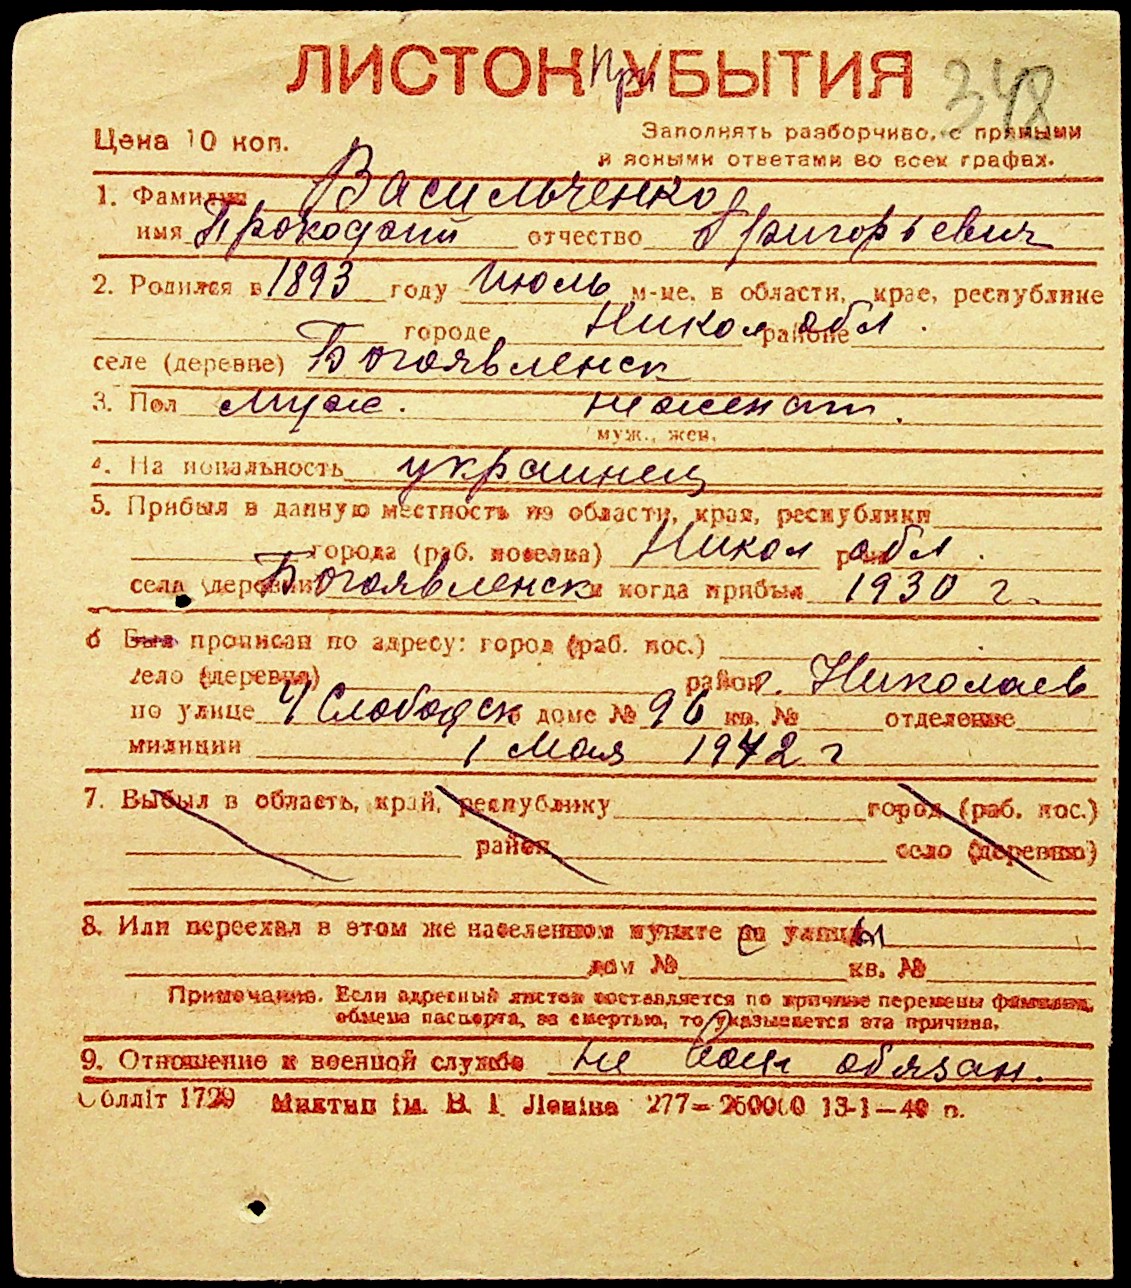 ЛИСТОК При УБЫТИЯ 348
Цена 10 коп.
Заполнять разборчиво, с прямыми
и ясными ответами во всех графах.
1. Фамилия Васильченко
имя Прокофий отчество Григорьевич
2. Родился в 1893 году Июль м-це, в области, крае, республике
городе Никол районе обл.
селе (деревне) Богоявленск
3. Пол муж. женат.
муж., жен.
4. На иональность украинец
5. Прибыл в данную местность из области, края, республики
города (раб. поселка) Никол р обл.
села (деревни) Богоявленск и когда прибыл 1930 г.
6 Был прописан по адресу: город (раб. пос.)
село (деревня) район г. Николаев
по улице 4 Слободск доме № 96 кв. № отделение
милиции 1 Мая 1942 г
7. Выбыл в область, край, республику город (раб. пос.)
район село (деревню)
8. Или переехал в этом же населенном пункте по улице
дом № кв. №
Примечание. Если адресный листок составляется по причине перемены фамилии,
обмена паспорта, за смертью, то указывается эта причина.
9. Отношение к военной службе не воен обязан.
Обллiт 1729 Миктип iм. В. I. Ленiна 277–250000 13-1–40 р.